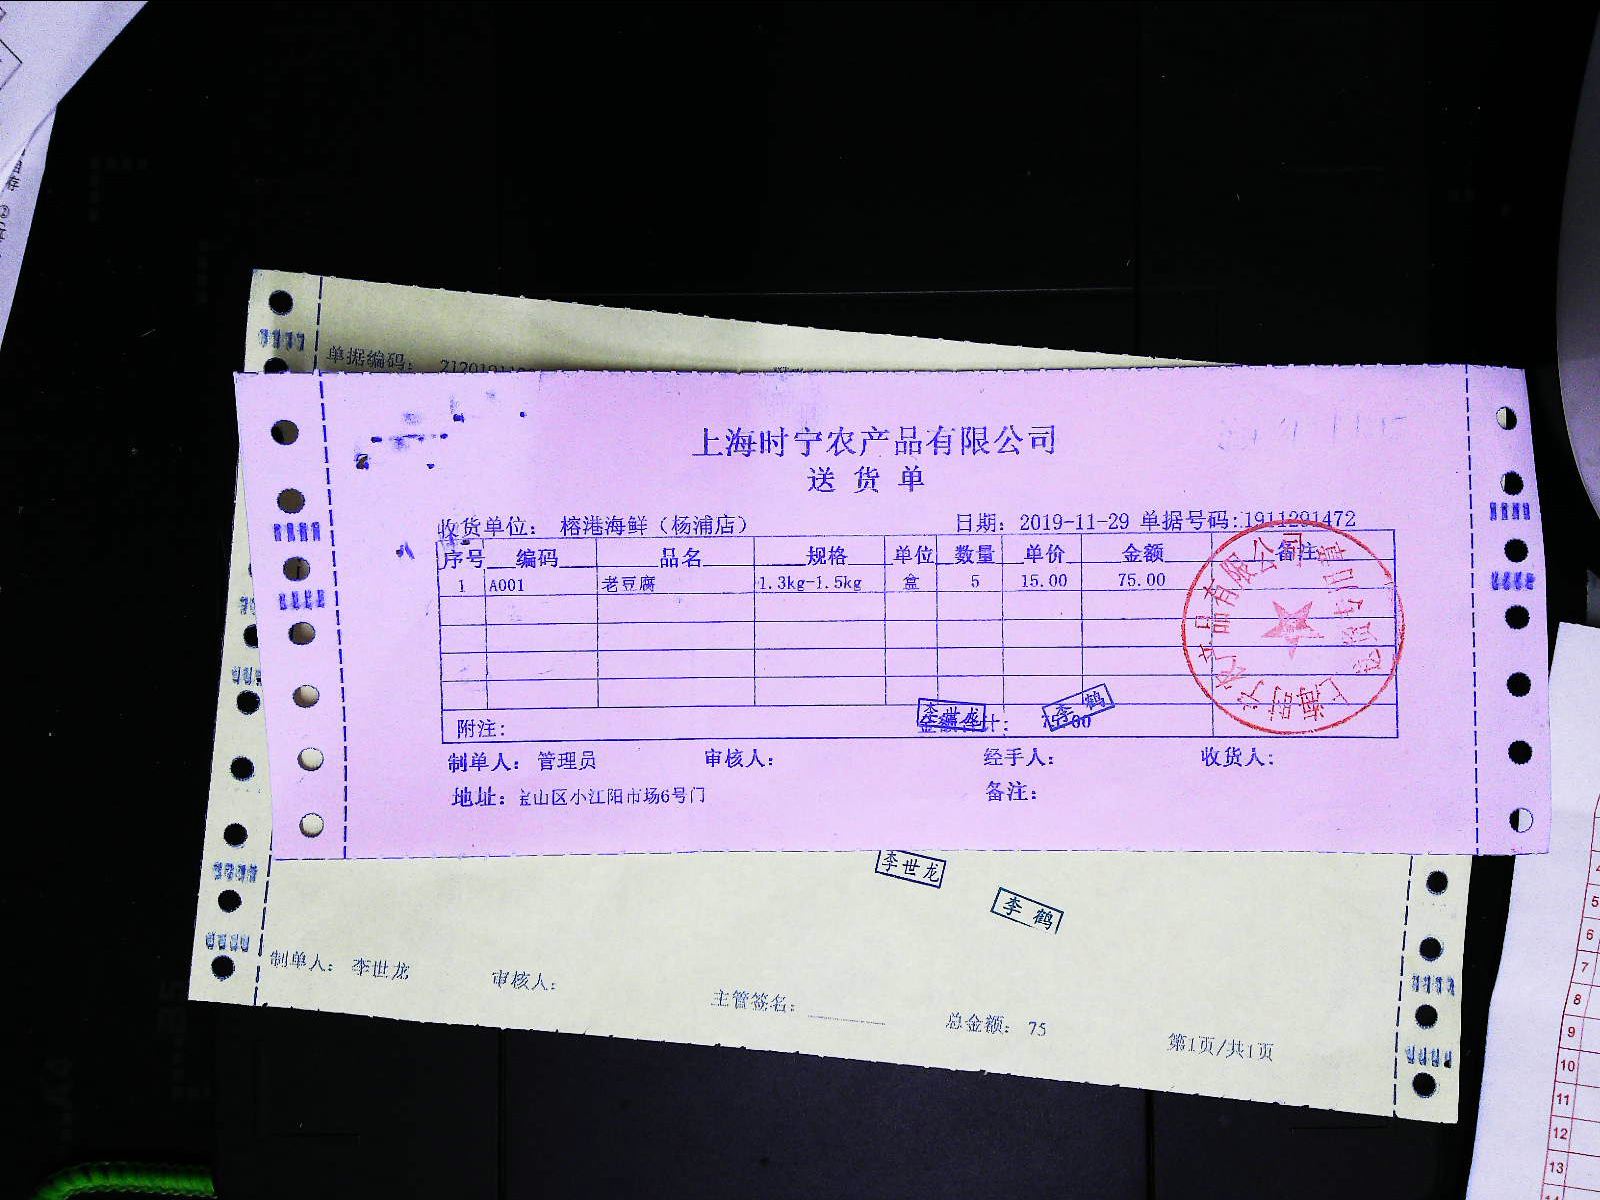 单据编码:
上海时宁农产品有限公司
送货单
收货单位: 榕港海鲜（杨浦店） 日期: 2019-11-29 单据号码: 1911291472
序号 编码 品名 规格 单位 数量 单价 金额 备注
1 A001 老豆腐 1.3kg-1.5kg 盒 5 15.00 75.00
李世龙 李鹤
附注: 金额合计: 75.00
制单人: 管理员 审核人: 经手人: 收货人:
地址: 宝山区小江阳市场6号门 备注:
李世龙
李鹤
制单人: 李世龙 审核人: 主管签名: 总金额: 75 第1页/共1页
4
5
6
7
8
9
10
11
12
13